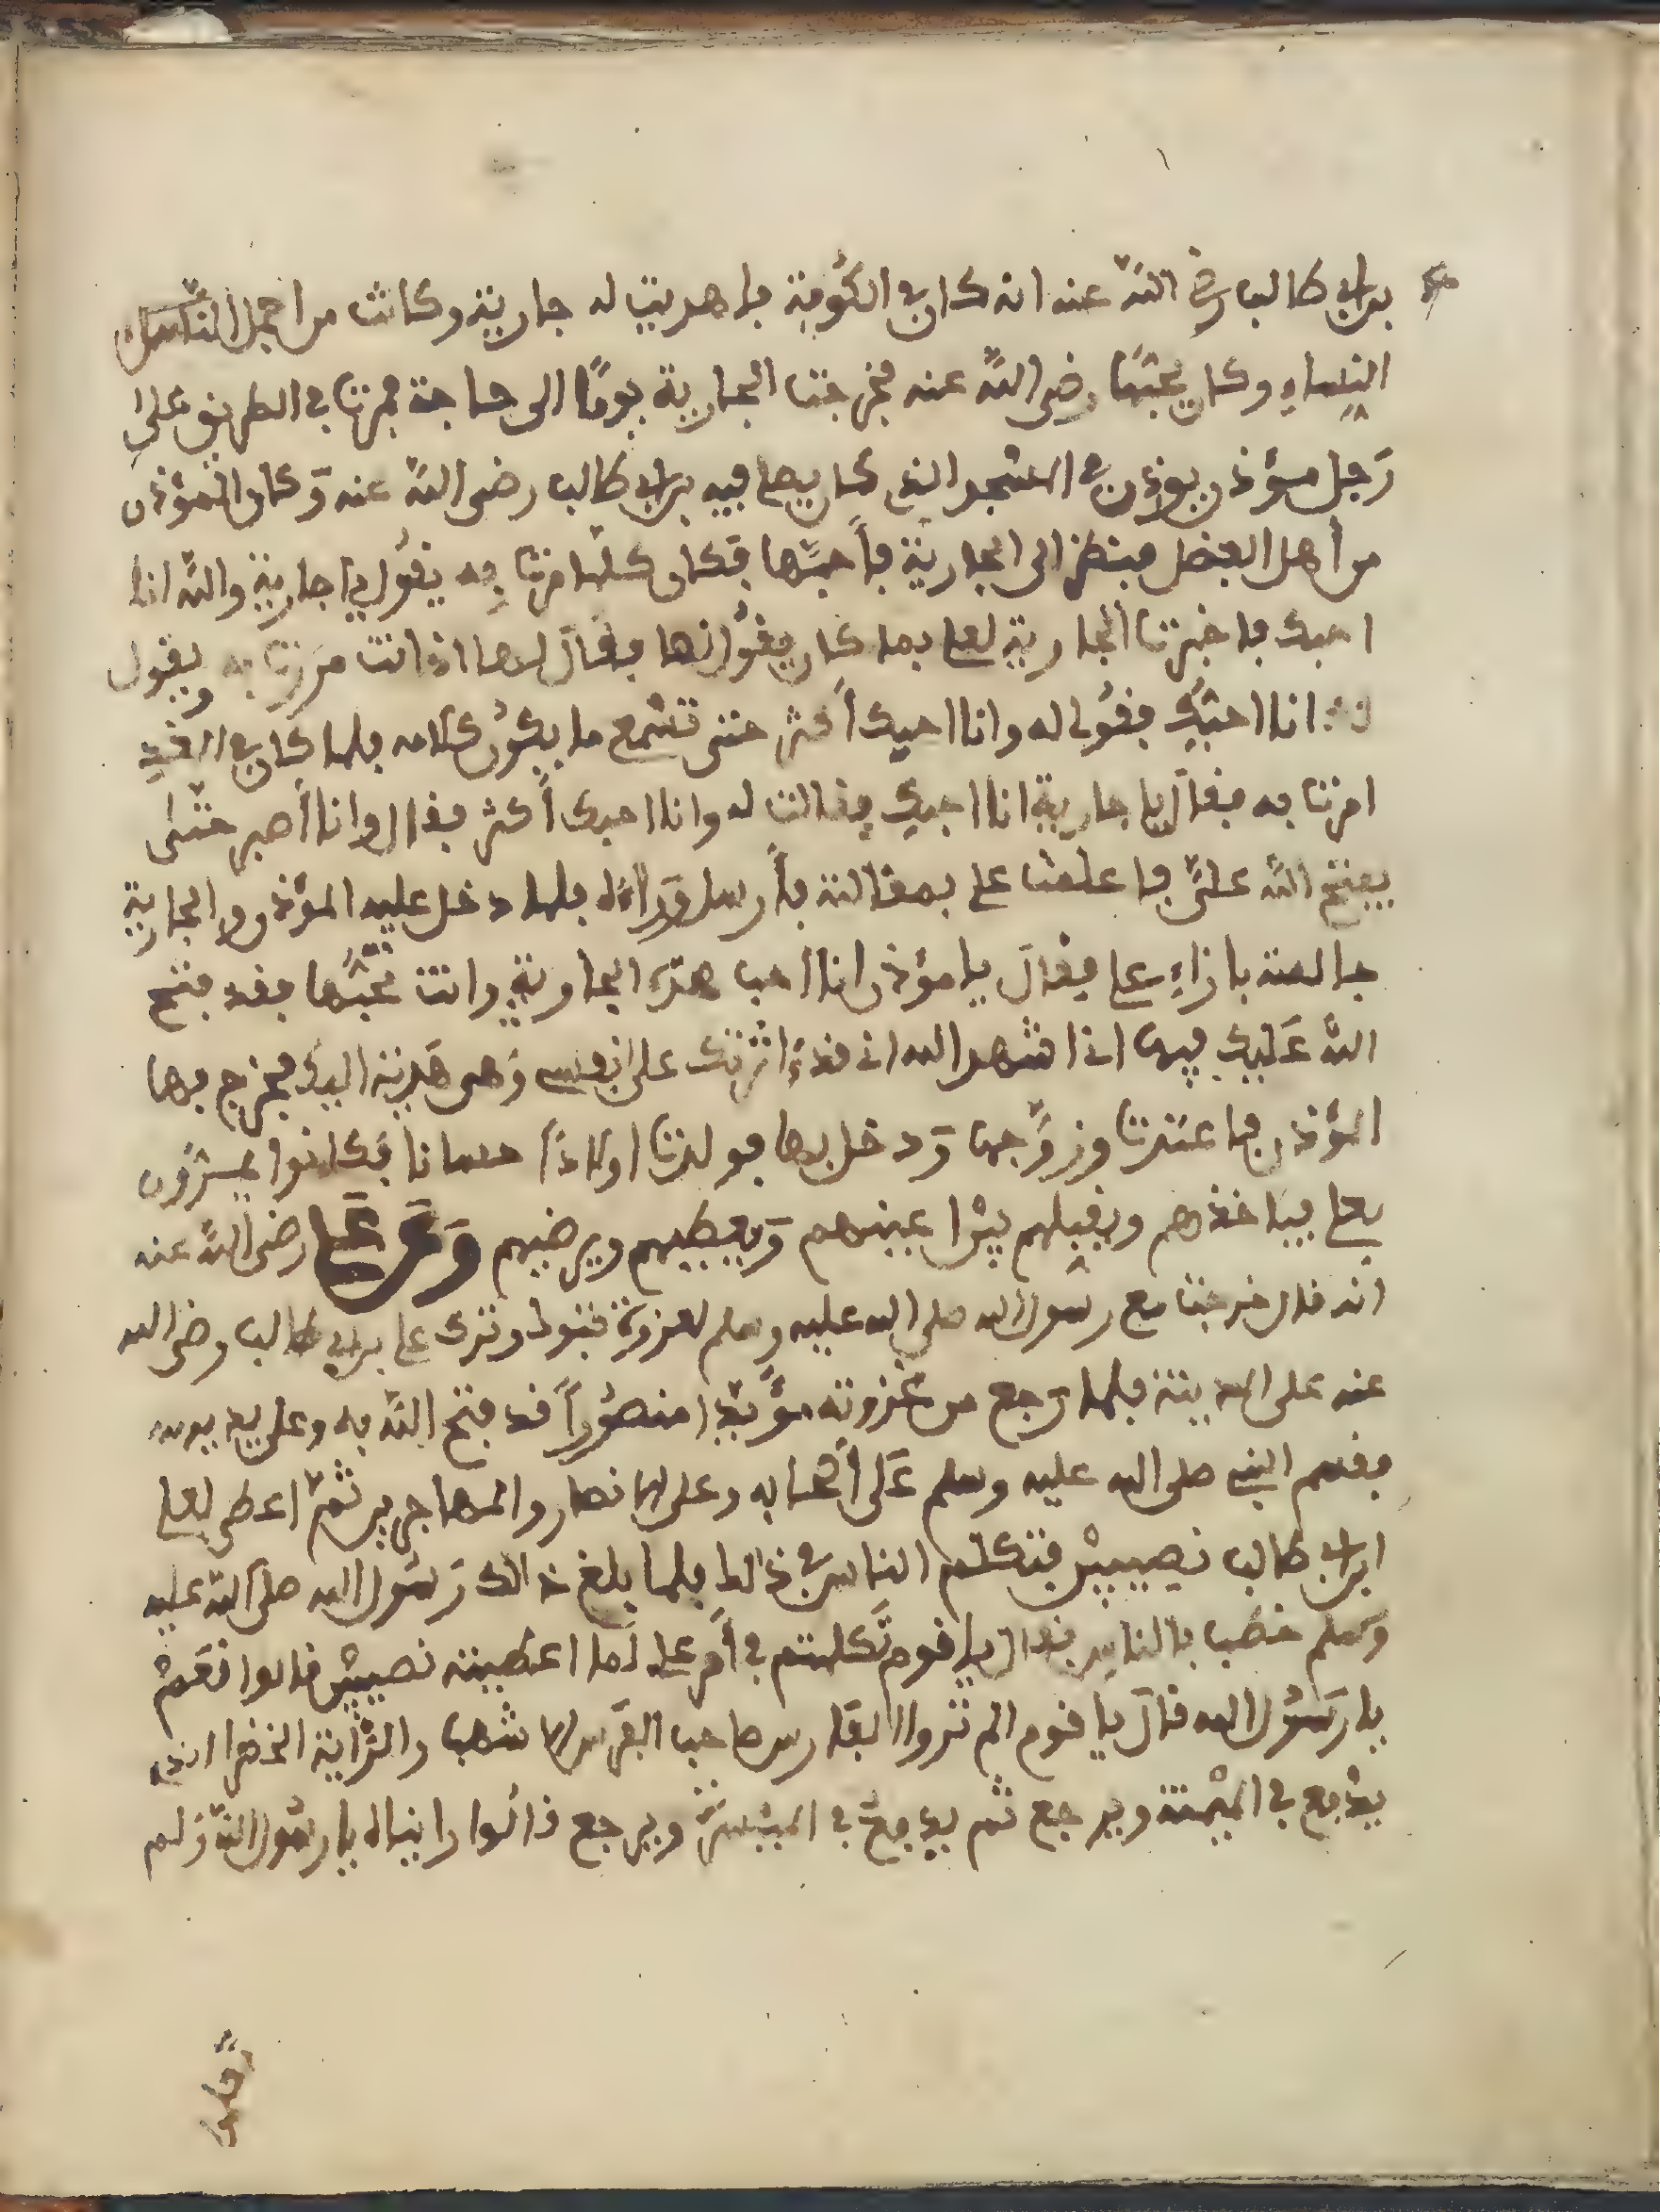 بن ابي طالب رضي الله عنه انه كان في الكُوفة فاهديت له جارية وكانت من اجمل
النساءِ وكان يحبُّها رضى الله عنه فخرجت الجارية يومًا الى حاجة فمرت في الطريق على
رَجل مؤذن يوذن في المسْجد الذي كان يصلي فيه بن ابي طالب رضى الله عنه وَكان المؤذن
من أهل الفضل فينظر الى الجارية فأحبَّها فكان كلّما مرت بِه يقُول يا جارية والله انا
احبك فاخبرت الجارية لعلي بما كان يقوُل لها فقال لها اذا انت مَررت به ويقول
لك انا احبّكِ فقُولى له وانا احبك أكثر حتى تسْمع ما يكوُن كلامه فلما كان في الغدِ
امرت به فقاَل يا جارية انا احبكِ فقالت له وانا احبك أكثر فقال وانا أصبر حَتى
يفتح الله علىَّ فاعلمت علي بمقالته فأرسل وَراءه فلما دخل عليه المؤذن والجارية
جالسة بازاءِ علي فقالَ يا مؤذن انا احب هذه الجارية وانت تحبُّها فقد فتح
الله عَليك فيها انا اشهد الله اني قد ءاثرتك على نفسي وَهى هَدية اليك فخرج بها
المؤذن فاعتقها وزوَّجها وَدخل بها فولدت اولادًا حسانا فكانوا يمرّون
بعلي فياخذهم ويقبلهم بين عينيهم وَيعطيهم ويرضيهم وَعَن عَلي رضى الله عنه
انه قال خرجنا مع رسُول الله صلى الله عليه وسلم لغزوة تبوك وترك علي بن ابي طالب رضى الله
عنه على المدينة فلما رَجع من غزوته مؤَيّدا منصُوراً قد فتح الله به وعلى يديه
فقسم النبي صلى الله عليه وسلم عَلى أصْحابه وعلى الانصار والمهاجرين ثمّ اعطى لعلي
ابن ابي طالب نصيبيْن فتكلم الناس في ذالك فلما بلغ ذالك رَسُول الله صلى الله عليه
وَسلم خطب بالناس فقال يا قوم تَكلمتم في أمر علي لَما اعطيته نصيبيْن قالوا نَعَمْ
يا رَسُول الله قالَ يا قوم الم تروا الفارس صاحب الفرَس الاشهب والرّاية الخضرا الذي
يدْفع في الميْمنة ويرجع ثم يدفع في الميْسرة ويرجع قالوا رايناه يا رسُول الله وَلم